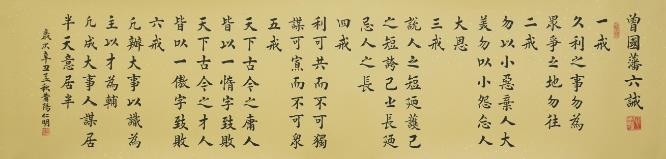 曾國藩六誡
一戒
久利之事勿為
眾爭之地勿往
二戒
勿以小惡棄人大
美勿以小怨忘人
大恩
三戒
說人之短廼護己
之短誇己之長廼
忌人之長
四戒
利可共而不可獨
謀可寡而不可眾
五戒
天下古今之庸人
皆以一惰字致敗
天下古今之才人
皆以一傲字致敗
六戒
凡辦大事以識為
主以才為輔
凡成大事人謀居
半天意居半
歲次辛丑孟秋
仁明